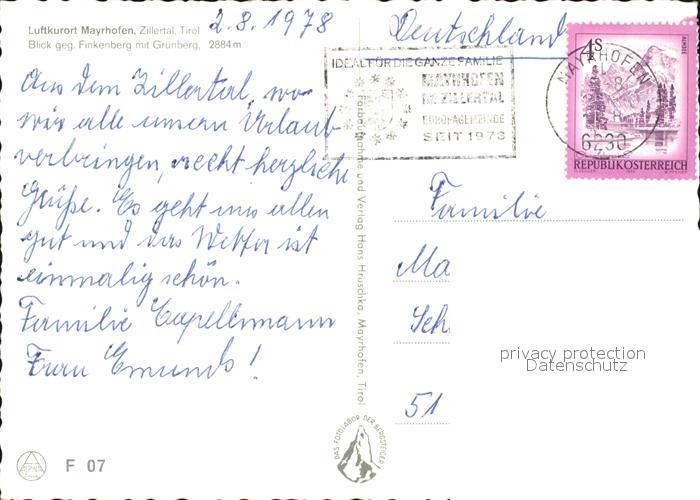 Luftkurort Mayrhofen, Zillertal, Tirol
Blick geg. Finkenberg mit Grünberg, 2884m
2.8.1978
Aus dem Zillertal, wo
wir alle unsern Urlaub
verbringen, recht herzliche
Grüße. Es geht uns allen
gut und das Wetter ist
einmalig schön.
Familie Capellmann
Frau Emunds!
F 07
Farbaufnahme und Verlag Hans Hruschka, Mayrhofen, Tirol
DAS FOTOLABOR DER BERGSTEIGER
Deutschland
IDEAL FÜR DIE GANZE FAMILIE
MAYRHOFEN
IM ZILLERTAL
EUROPAGEMEINDE
SEIT 1973
MAYRHOFEN
6290
4 S
REPUBLIK ÖSTERREICH
Familie
Ma
Sch
51
privacy protection
Datenschutz